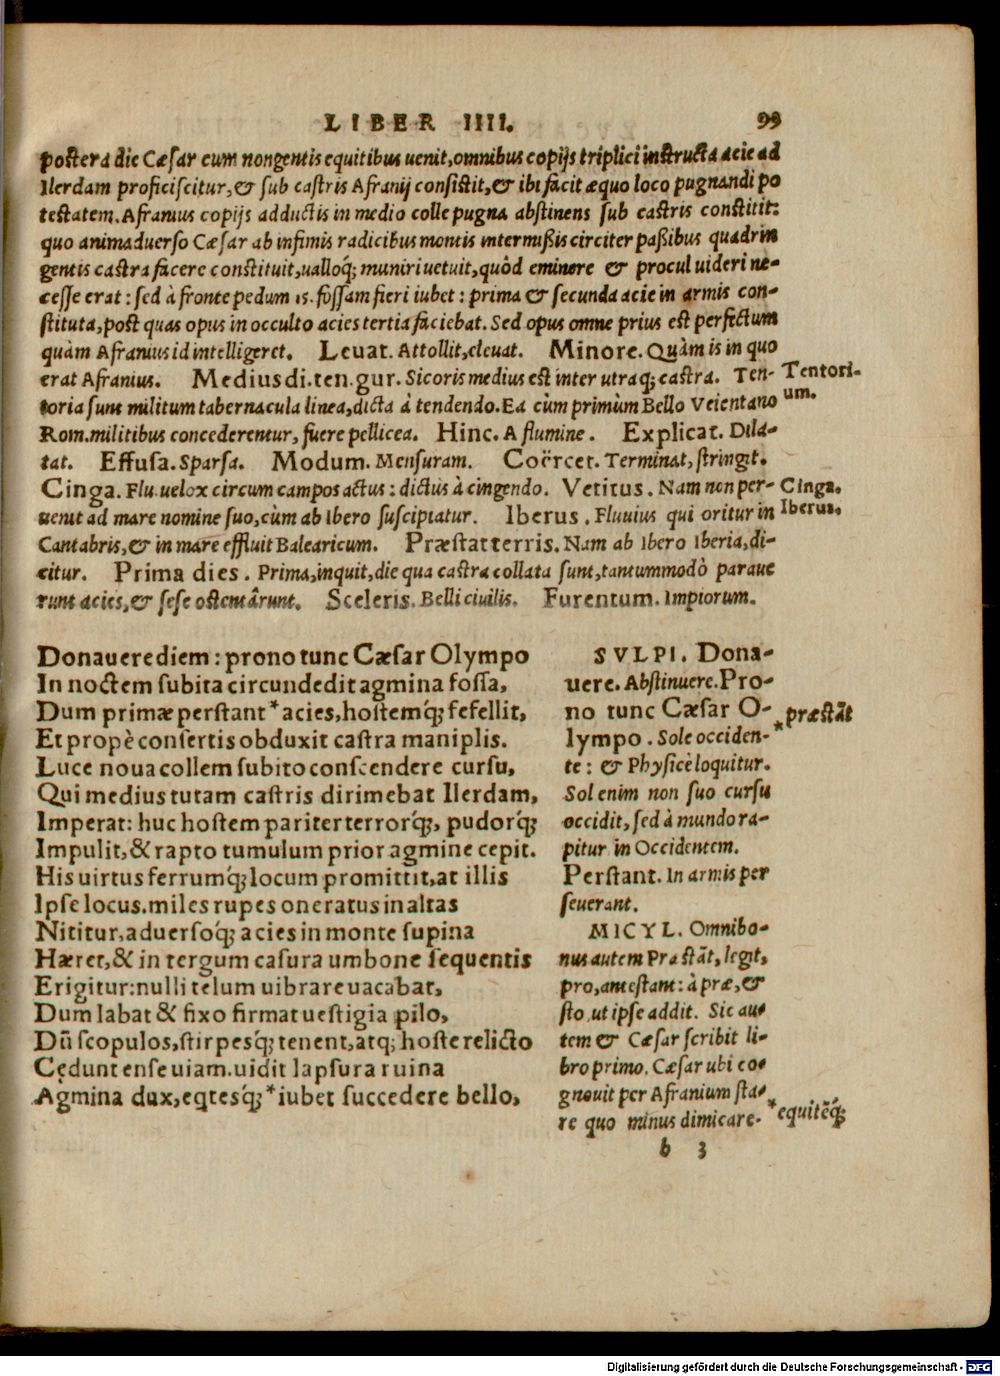 LIBER IIII. 99
postera die Cæsar cum nongentis equitibus uenit, omnibus copijs triplici instructa acie ad
Ilerdam proficiscitur, & sub castris Afranij consistit, & ibi facit æquo loco pugnandi po
testatem. Afranius copijs adductis in medio colle pugna abstinens sub castris constitit:
quo animaduerso Cæsar ab infimis radicibus montis intermißis circiter paßibus quadrin
gentis castra facere constituit, ualloq́; muniri uetuit, quòd eminere & procul uideri ne-
cesse erat: sed à fronte pedum 15. fossam fieri iubet: prima & secunda acie in armis con-
stituta, post quas opus in occulto acies tertia faciebat. Sed opus omne prius est perfectum
quàm Afranius id intelligeret. Leuat. Attollit, eleuat. Minore. Quàm is in quo
erat Afranius. Medius di. ten. gur. Sicoris medius est inter utraq; castra. Ten- Tentori-
toria sunt militum tabernacula linea, dicta à tendendo. Ea cùm primùm Bello Veientano um.
Rom. militibus concederentur, fuere pellicea. Hinc. A flumine. Explicat. Dila-
tat. Effusa. Sparsa. Modum. Mensuram. Coërcet. Terminat, stringit.
Cinga. Flu. uelox circum campos actus: dictus à cingendo. Vetitus. Nam non per- Cinga.
uenit ad mare nomine suo, cùm ab Ibero suscipiatur. Iberus. Fluuius qui oritur in Iberus.
Cantabris, & in mare effluit Balearicum. Præstat terris. Nam ab Ibero Iberia, di-
citur. Prima dies. Prima, inquit, die qua castra collata sunt, tantummodò paraue
runt acies, & sese ostentârunt. Sceleris. Belli ciuilis. Furentum. Impiorum.
Donauere diem: prono tunc Cæsar Olympo
In noctem subita circundedit agmina fossa,
Dum primæ perstant * acies, hostemq́; fefellit,
Et propè consertis obduxit castra maniplis.
Luce noua collem subito conscendere cursu,
Qui medius tutam castris dirimebat Ilerdam,
Imperat: huc hostem pariter terrorq́;, pudorq́;
Impulit, & rapto tumulum prior agmine cepit.
His uirtus ferrumq́; locum promittit, at illis
Ipse locus. miles rupes oneratus in altas
Nititur, aduersoq́; acies in monte supina
Hæret, & in tergum casura umbone sequentis
Erigitur: nulli telum uibrare uacabat,
Dum labat & fixo firmat uestigia pilo,
Dũ scopulos, stirpesq́; tenent, atq; hoste relicto
Cędunt ense uiam. uidit lapsura ruina
Agmina dux, eqtesq́; * iubet succedere bello,
SVLPI. Dona-
uere. Abstinuere. Pro-
no tunc Cæsar O- * præstãt
lympo. Sole occiden-
te: & Physicè loquitur.
Sol enim non suo cursu
occidit, sed à mundo ra-
pitur in Occidentem.
Perstant. In armis per
seuerant.
MICYL. Omnibo-
nus autem Præstãt, legit,
pro, antestant: à præ, &
sto. ut ipse addit. Sic au-
tem & Cæsar scribit li-
bro primo. Cæsar ubi co-
gnouit per Afranium sta-
re quo minus dimicare- * equitẽq́;
b 3
Digitalisierung gefördert durch die Deutsche Forschungsgemeinschaft - DFG